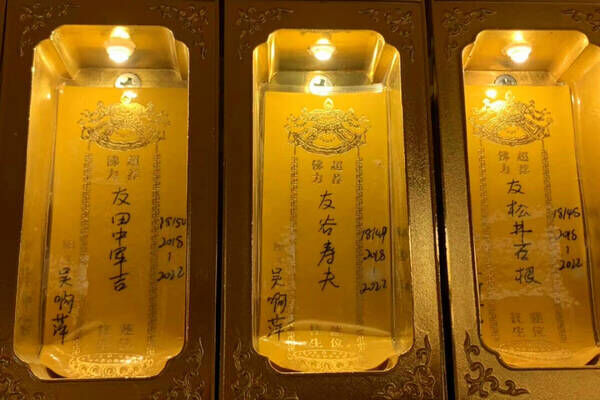 超荐
佛力
友田中军吉
18150
2018
|
2022
吴啊萍
莲位
往生
超荐
佛力
友谷寿夫
18149
2018
|
2022
吴啊萍
莲位
往生
超荐
佛力
友松井石根
18148
2018
|
2022
莲位
往生